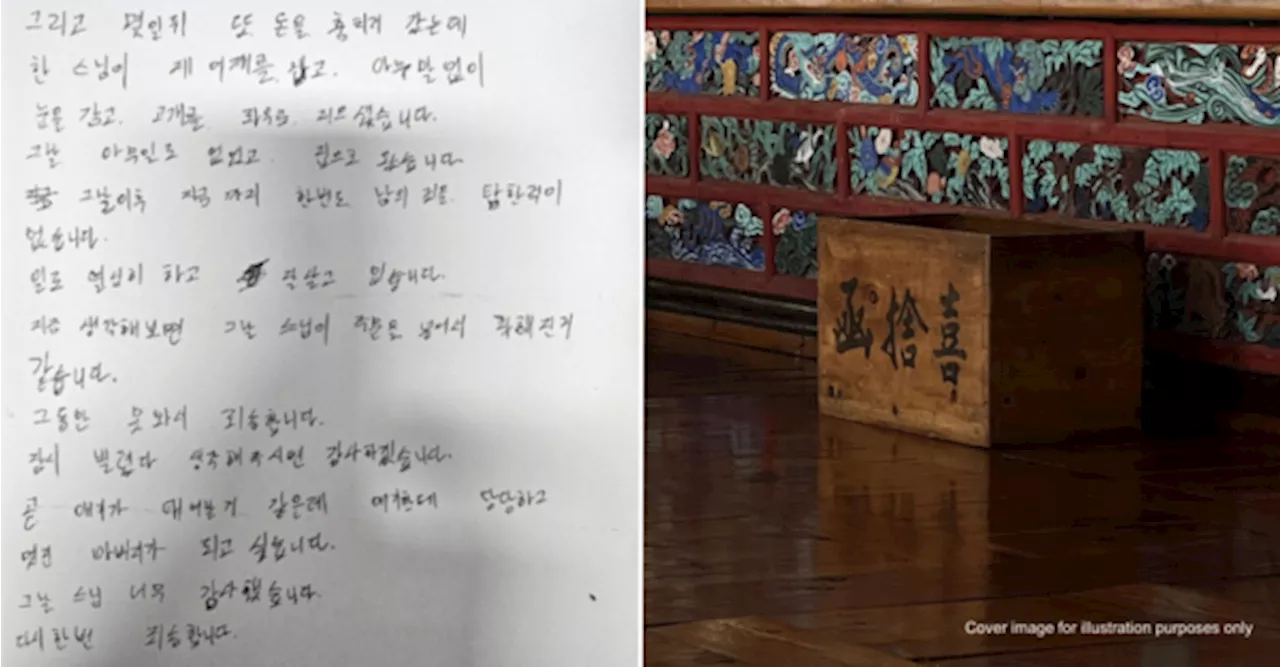 그리고 몇일뒤 또 돈을 훔치러 갔는데
한 스님이 제 어깨를 잡고. 아무말 없이
눈을 감고. 고개를 좌우로 저으셨습니다.
그날 아무일도 없었고. 집으로 왔습니다
그날이후 지금까지 한번도 남의 것을 탐한적이
없습니다.
일도 열심히 하고 잘살고 있습니다.
지금 생각해보면 그날 스님이 주문을 넣어서 착해진거
같습니다.
그동안 못와서 죄송합니다.
잠시 빌렸다 생각해주시면 감사하겠습니다.
곧 애기가 태어날거 같은데 애기한테 당당하고
멋진 아버지가 되고 싶습니다.
그날 스님 너무 감사했습니다.
다시한번 죄송합니다.
函捨喜
Cover image for illustration purposes only